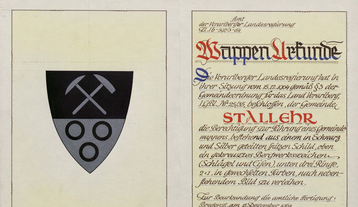 Amt
der Vorarlberger Landesregierung
Wappen Urkunde
Die Vorarlberger Landesregierung hat in
ihrer Sitzung vom 15.12.1964 gemäß § 3 der
Gemeindeordnung für das Land Vorarlberg
LGBl. beschlossen, der Gemeinde
STALLEHR
die Berechtigung zur Führung eines Gemeinde-
wappens, bestehend aus einem in Schwarz
und Silber geteilten Schild, oben
ein gekreuztes Bergwerkszeichen
(Schlägel und Eisen), unten drei Ringe
2:1, in gewechselten Farben, nach neben-
stehendem Bild zu verleihen.
Für Beurkundung die amtliche Fertigung.
Bregenz, am Dezember 1964